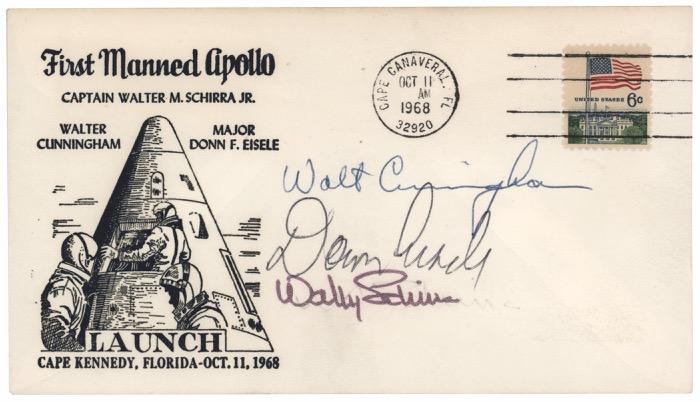 First Manned Apollo
CAPTAIN WALTER M. SCHIRRA JR.
WALTER CUNNINGHAM
MAJOR DONN F. EISELE
LAUNCH
CAPE KENNEDY, FLORIDA-OCT. 11, 1968
CAPE CANAVERAL, FL
OCT 11
AM
1968
32920
UNITED STATES 6c
Walt Cunningham
Donn Eisele
Wally Schirra